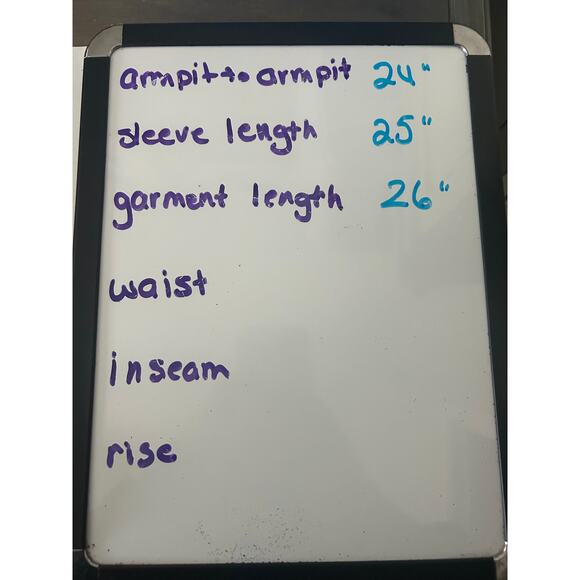 armpit to armpit 24"
sleeve length 25"
garment length 26"
waist
inseam
rise